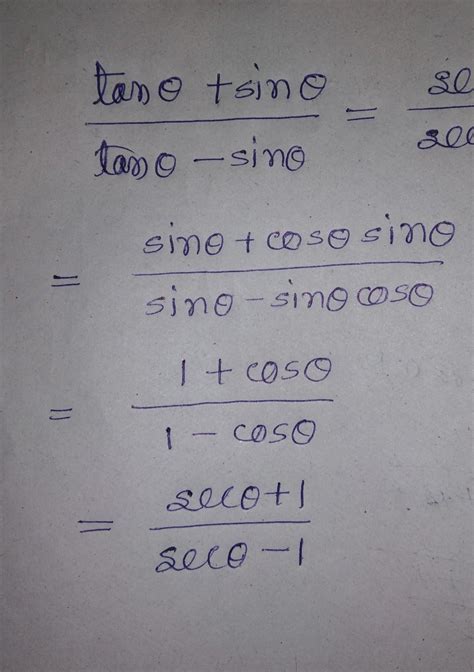 tanθ + sinθ / tanθ − sinθ =
= sinθ + cosθ sinθ / sinθ − sinθ cosθ
= 1 + cosθ / 1 − cosθ
= secθ + 1 / secθ − 1